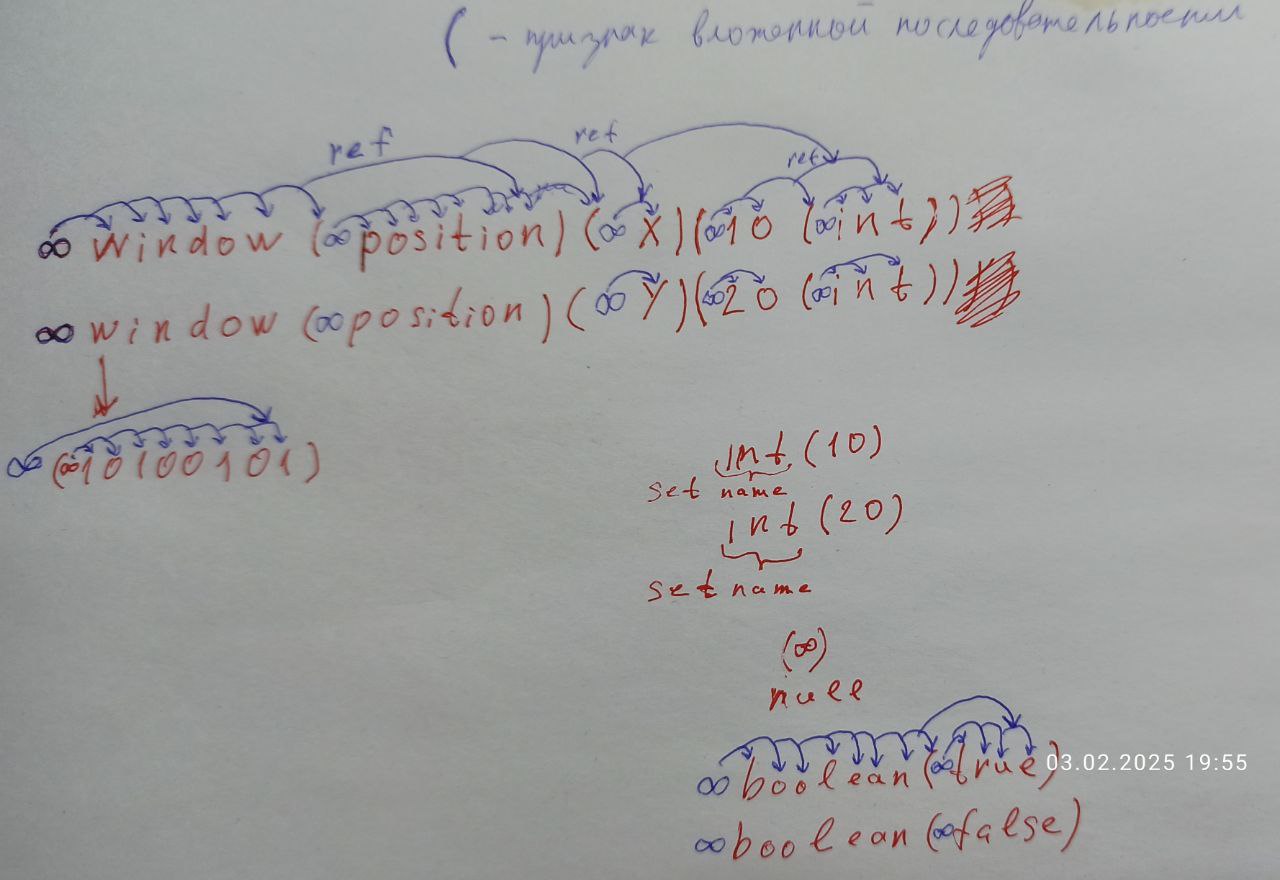 ( - признак вложенной последовательности
ref ref ref
∞ window (∞ position) (∞ X) (∞ 10 (∞ int))
∞ window (∞ position) (∞ Y) (∞ 20 (∞ int))
∞ (∞ 10100101)
int (10)
set name
int (20)
set name
(∞)
null
∞ boolean (∞ true)
03.02.2025 19:55
∞ boolean (∞ false)